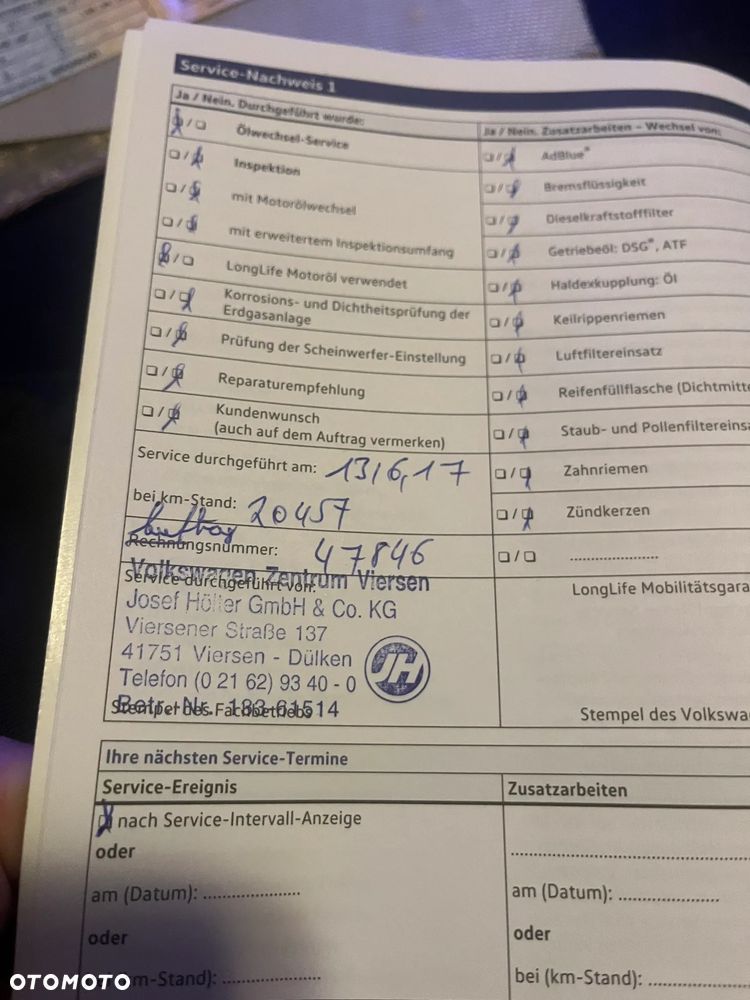 Service-Nachweis 1
Ja / Nein. Durchgeführt wurde:
Ölwechsel-Service
Inspektion
mit Motorölwechsel
mit erweitertem Inspektionsumfang
LongLife Motoröl verwendet
Korrosions- und Dichtheitsprüfung der
Erdgasanlage
Prüfung der Scheinwerfer-Einstellung
Reparaturempfehlung
Kundenwunsch
(auch auf dem Auftrag vermerken)
Service durchgeführt am: 13/6,17
bei km-Stand: 20457
Auftrag
Rechnungsnummer: 47846
Service durchgeführt von:
Volkswagen Zentrum Viersen
Josef Höller GmbH & Co. KG
Viersener Straße 137
41751 Viersen - Dülken
Telefon (0 21 62) 93 40 - 0
Betr.-Nr. 183-61514
JH
Stempel des Fachbetriebs
Ja / Nein. Zusatzarbeiten – Wechsel von:
AdBlue®
Bremsflüssigkeit
Dieselkraftstofffilter
Getriebeöl: DSG®, ATF
Haldexkupplung: Öl
Keilrippenriemen
Luftfiltereinsatz
Reifenfüllflasche (Dichtmitte
Staub- und Pollenfiltereinsa
Zahnriemen
Zündkerzen
LongLife Mobilitätsgara
Stempel des Volkswa
Ihre nächsten Service-Termine
Service-Ereignis
nach Service-Intervall-Anzeige
oder
am (Datum):
oder
m-Stand):
Zusatzarbeiten
am (Datum):
oder
bei (km-Stand):
OTOMOTO